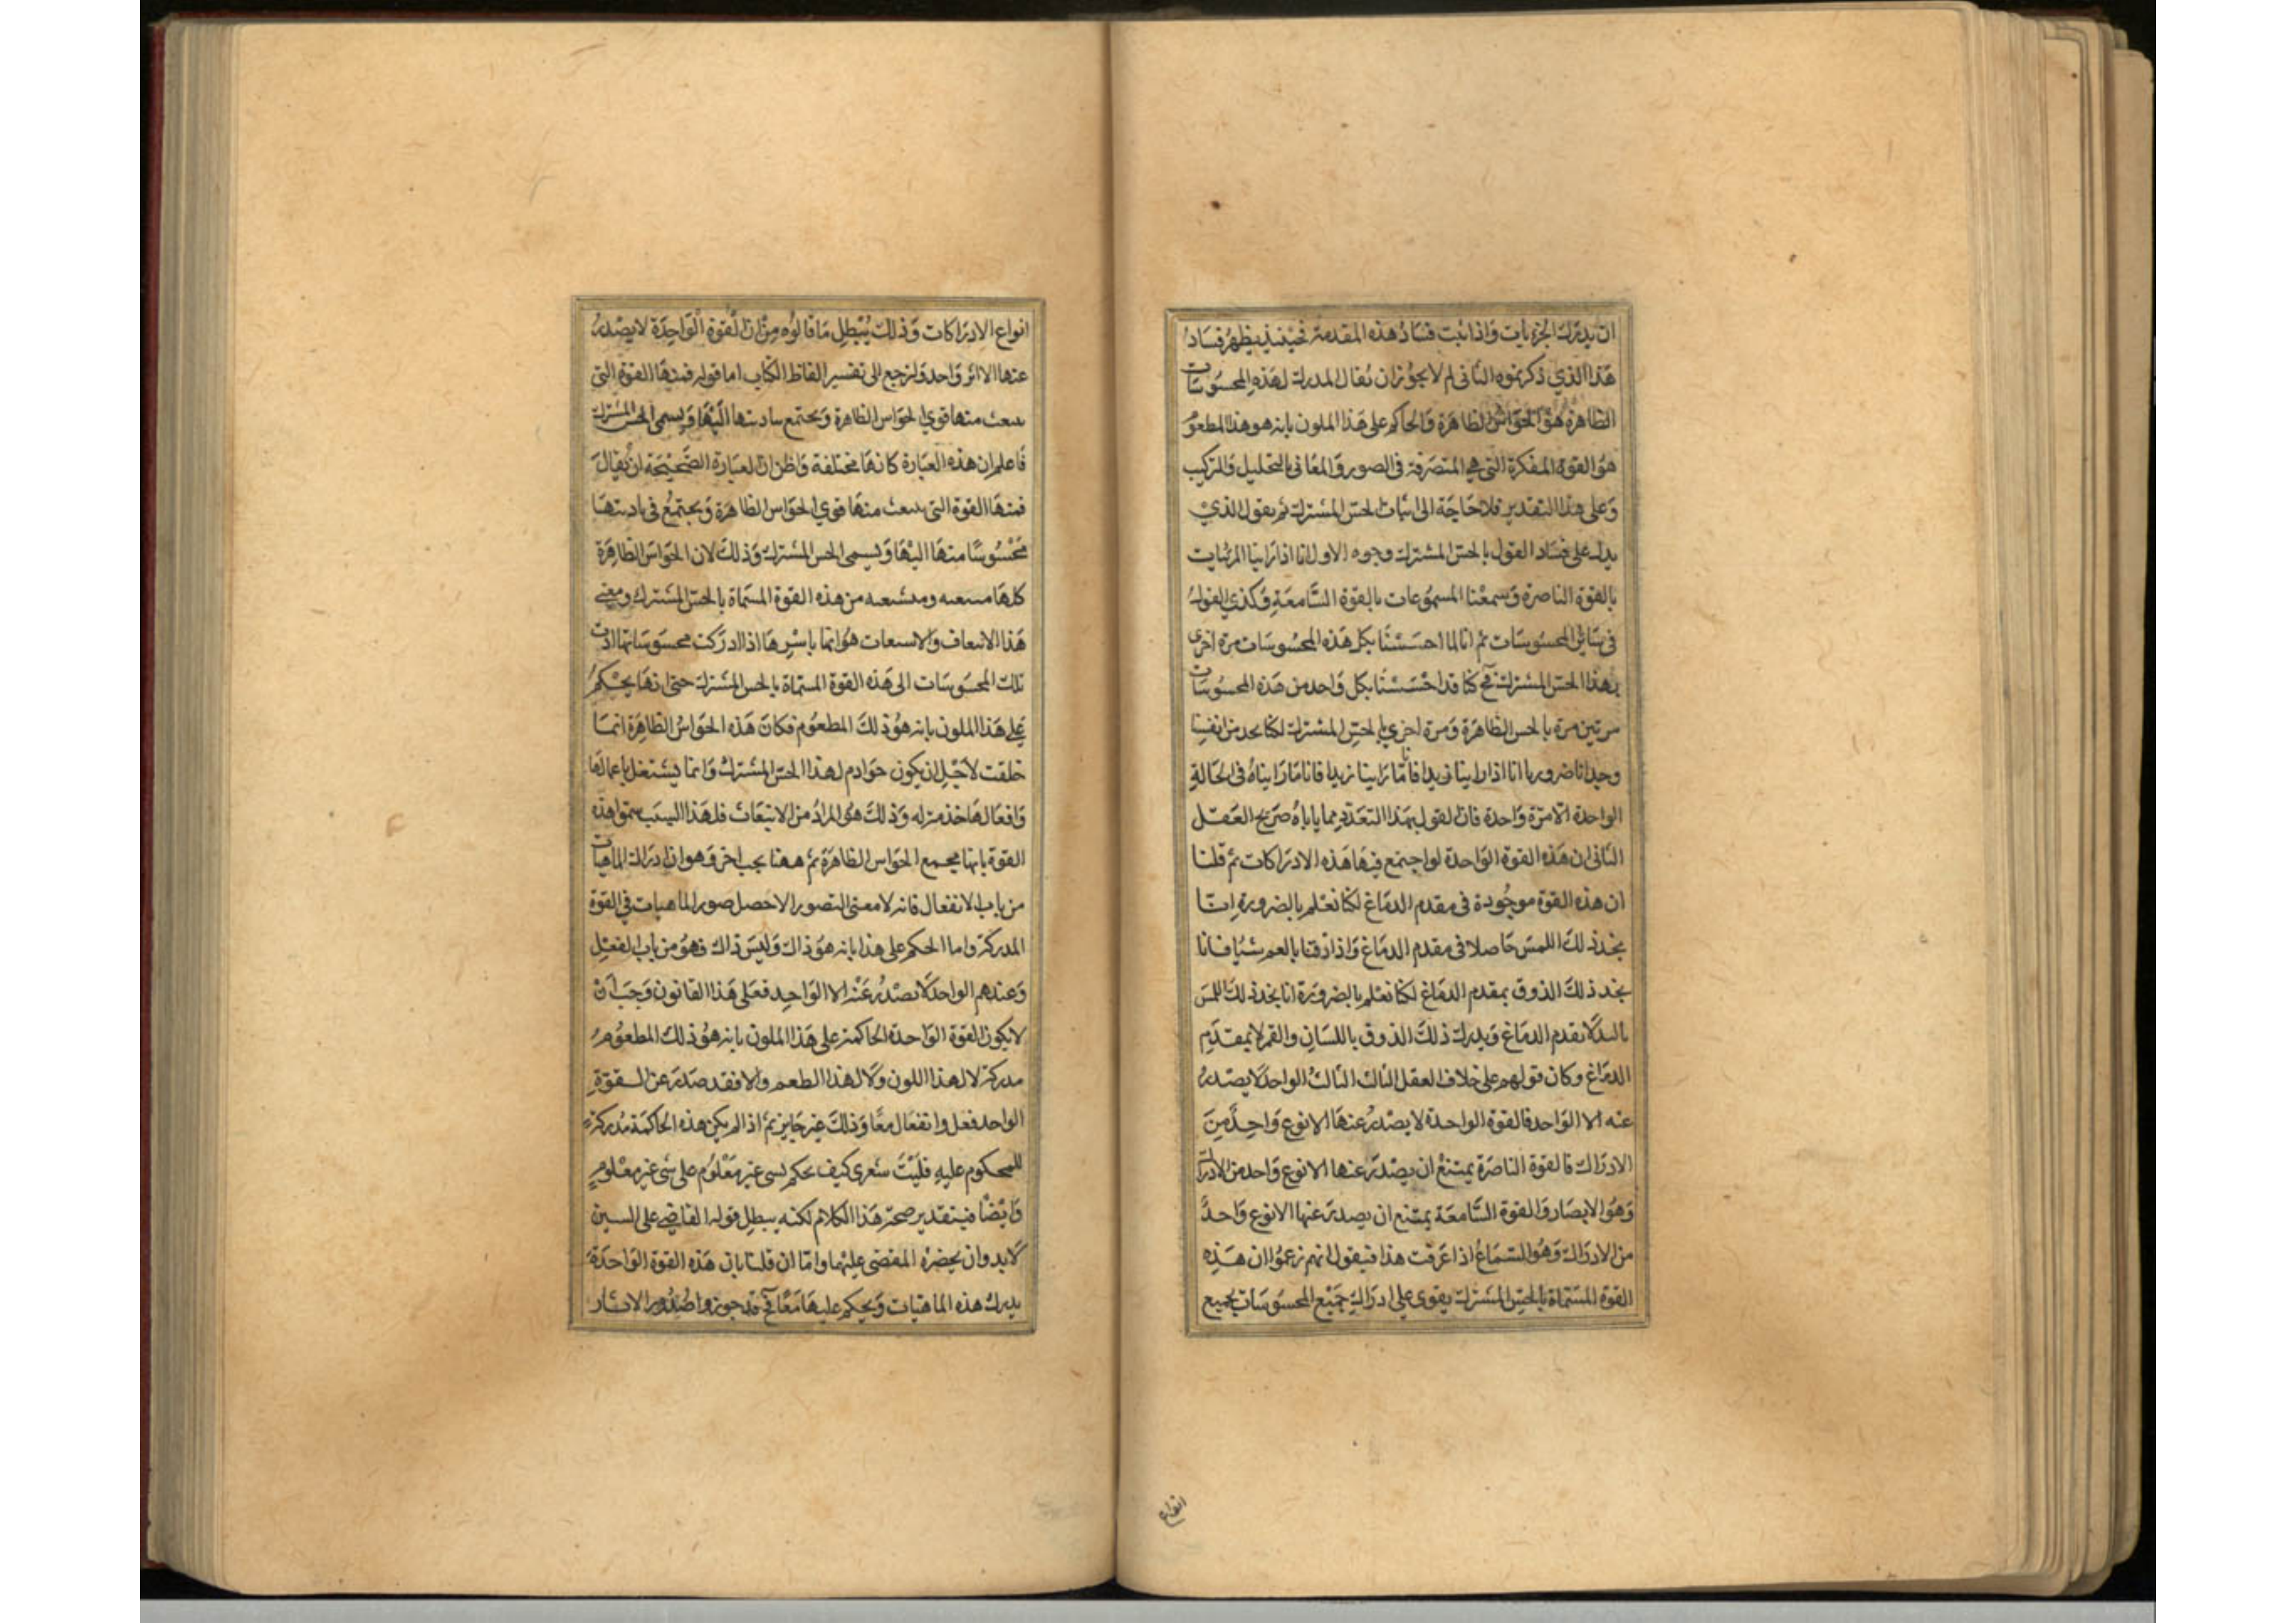 ان يدرك الجزءيات وَاذا ثبت فسَادُ هذه المقدمة فحينئذ يظهرُ فسَادُ
هَذا الذي ذكرتموه الثانى لم لا يجوُزان يُقال المدرك لهَذهِ المحسُوسَات
الظاهرة هوَ الحَواسُ الظاهرَة وَالحاكم على هَذا الملون بانه هو هذا المطعوُم
هوَ القوة المفكرة التي هى المتصَرفة فى الصور وَالمعَانى بالتحليل وَالتركيب
وَعلى هذا التقدير فلا حَاجَة الى اثباث الحسّ المشترك ثم يقول الذيْ
يدل على فسَاد القول بالحسّ المشترك وجوه الاول انا اذا رَاينا المرئيات
بالقوة الناصرة وَسمعْنا المسموُعات بالقوة السَّامعَةِ وَكذى القول
فى سَائر المحسوسَات ثم انا لما احسَسْنا بكل هَذه المحسُوسَات مرة اخرى
بهذا الحسّ المشترك فح كنا قد احْسَسْنا بكل وَاحد من هَذه المحسُوسَات
مرتين مرة بالحس الظاهرَة وَمرة اخري بالحسِّ المشترك لكنا نجد من انفسنا
وجدانا ضروريا انا اذا راينا زيدا فامّا رَاينا زيدا فانا مَا رَاينَاهُ فى الحَالةِ
الواحدة الّا مرّة وَاحدة فانّ القول بهَذا التعَدّد مما ياباهُ صَريح العَقل
الثانى ان هَذه القوة الوَاحدة لو اجتمَع فيهَا هَذه الادرَاكات ثم قلنا
ان هذه القوة موجُودة فى مقدم الدمَاغ لكنا نعْلم بالضرورةِ انّا
نجد ذلكَ اللمسَ حَاصلا فى مقدم الدمَاغ وَاذا ذقنا بالعم شيًا فانا
نجد ذلكَ الذوق بمقدم الدمَاغ لكنا نعْلم بالضروَرة انا نجد ذلكَ اللمسَ
باليد لَا بمقدم الدمَاغ وَيدرك ذلكَ الذوق باللسَانِ والفم لَا بمقدَمِ
الدمَاغ وكان قولهم على خلاف العقل الثالث الثالثُ الواحد لَا يصْدرُ
عنه الا الوَاحد فالقوة الواحدة لا يصْدرُ عنهَا الا نوع وَاحِدٌ مِنَ
الادرَاك فالقوة الناصَرة يمتنعْ ان يصْدرَ عنها الا نوع وَاحد من الادراك
وَهوَ الابصَار وَالقوة السَّامعَة يمتنع ان يصدرَ عنها الا نوع وَاحدٌ
من الادرَاك وَهوَ السّمَاعُ اذا عَرفت هذا فنقول انهم زعمُوا ان هَذِه
القوة المسَمّاة بالحسّ المشترك يقوى على ادرَاك جَميْع المحسوسَات بجميع
انواع
انواع الادرَاكات وَذلكَ يُبْطِل مَا قالوُه مِنْ انّ القوة الوَاحِدَة لا يصْدرُ
عنها الا اثر وَاحد وَلنرجع الى تفسير الفاظ الكتاب اما قوله فمنهَا القوة التى
سعث منها قوي الحوَاس الظاهرة وَيجتمع بتاديتها اليْهَا وَيسمى الحسّ المشترك
فَاعلم ان هذه العبَارة كانهَا مختلفة وَاظن انّ العبَارة الصَّحيْحَة ان يُقالَ
فمنهَا القوة التى سعث منهَا قوي الحوَاس الظاهرَة وَيجتمعُ فى تاديتهَا
محْسُوسًا منهَا اليْهَا وَيسمى الحس المشترك وَذلكَ لان الحوَاسَ الظاهِرَة
كلهَا منبعثه ومنشعبه من هذه القوة المسَمَاة بالحسّ المشترك ومعنى
هَذا الانبعاف والانبعاث هوَ انما باسْرِهَا اذا ادرَكت محسَوسَاتها ادّت
تلك المحسَوسَات الى هَذه القوة المسمّاة بالحس المشترك حتى انهَا يحْكمُ
عَلى هَذا الملون بانه هوَ ذلكَ المطعوُم فكانَ هَذه الحوَاسُ الظاهِرَة انمَا
خلقت لاَجْلِ ان يكون خوَادم لهذا الحسّ المشتركْ وَانما يشتغل باعمالهَا
وَافعَالهَا خدمة له وَذلكَ هوَ المرادُ من الانبعَاث فلهَذا السبَب سموا هذه
القوة بانها مجمع الحوَاس الظاهرَة ثم ههنا بحب اخر وَهو ان ادرَاك الماهيات
من باب الانفعال فانه لا معنى للتصور الا حصل صور الماهيات فى القوة
المدركة واما الحكم على هذا بانه هوَ ذاك وَليسَ ذاك فهوَ من باب الفعْلِ
وَعندهم الواحد لَا يصْدرُ عَنْه الا الوَاحِد فعَلى هَذا القانون وَجَبَ انْ
لا يكون القوة الوَاحدة الحَاكمة على هَذا الملون بانه هوَ ذلك المطعوُم
مدركة لا لهذا اللون وَلَا لهذا الطعم والا فقد صَدرَ عن القوّةِ
الواحد فعل وانفعَال معًا وَذلكَ غيرجَايز ثم اذا لم يكن هذه الحاكمَة مُدركةٍ
للمحكوم عليهِ فليْتَ شعْري كيف يحكم بشى غير معْلوُم على شى غير معْلومٍ
وَايْضًا فبتقدير صحة هَذا الكلام لكنه يبطل قوله القاضى على الشيئين
لَابد وان يحضرهُ المقضى عليْهما وامّا ان قلنا بان هَذه القوة الوَاحدَة
يدرك هذه الماهيّات وَيحكم عليهَا مَعًا فح قد جوزوا صُدُور الاثار